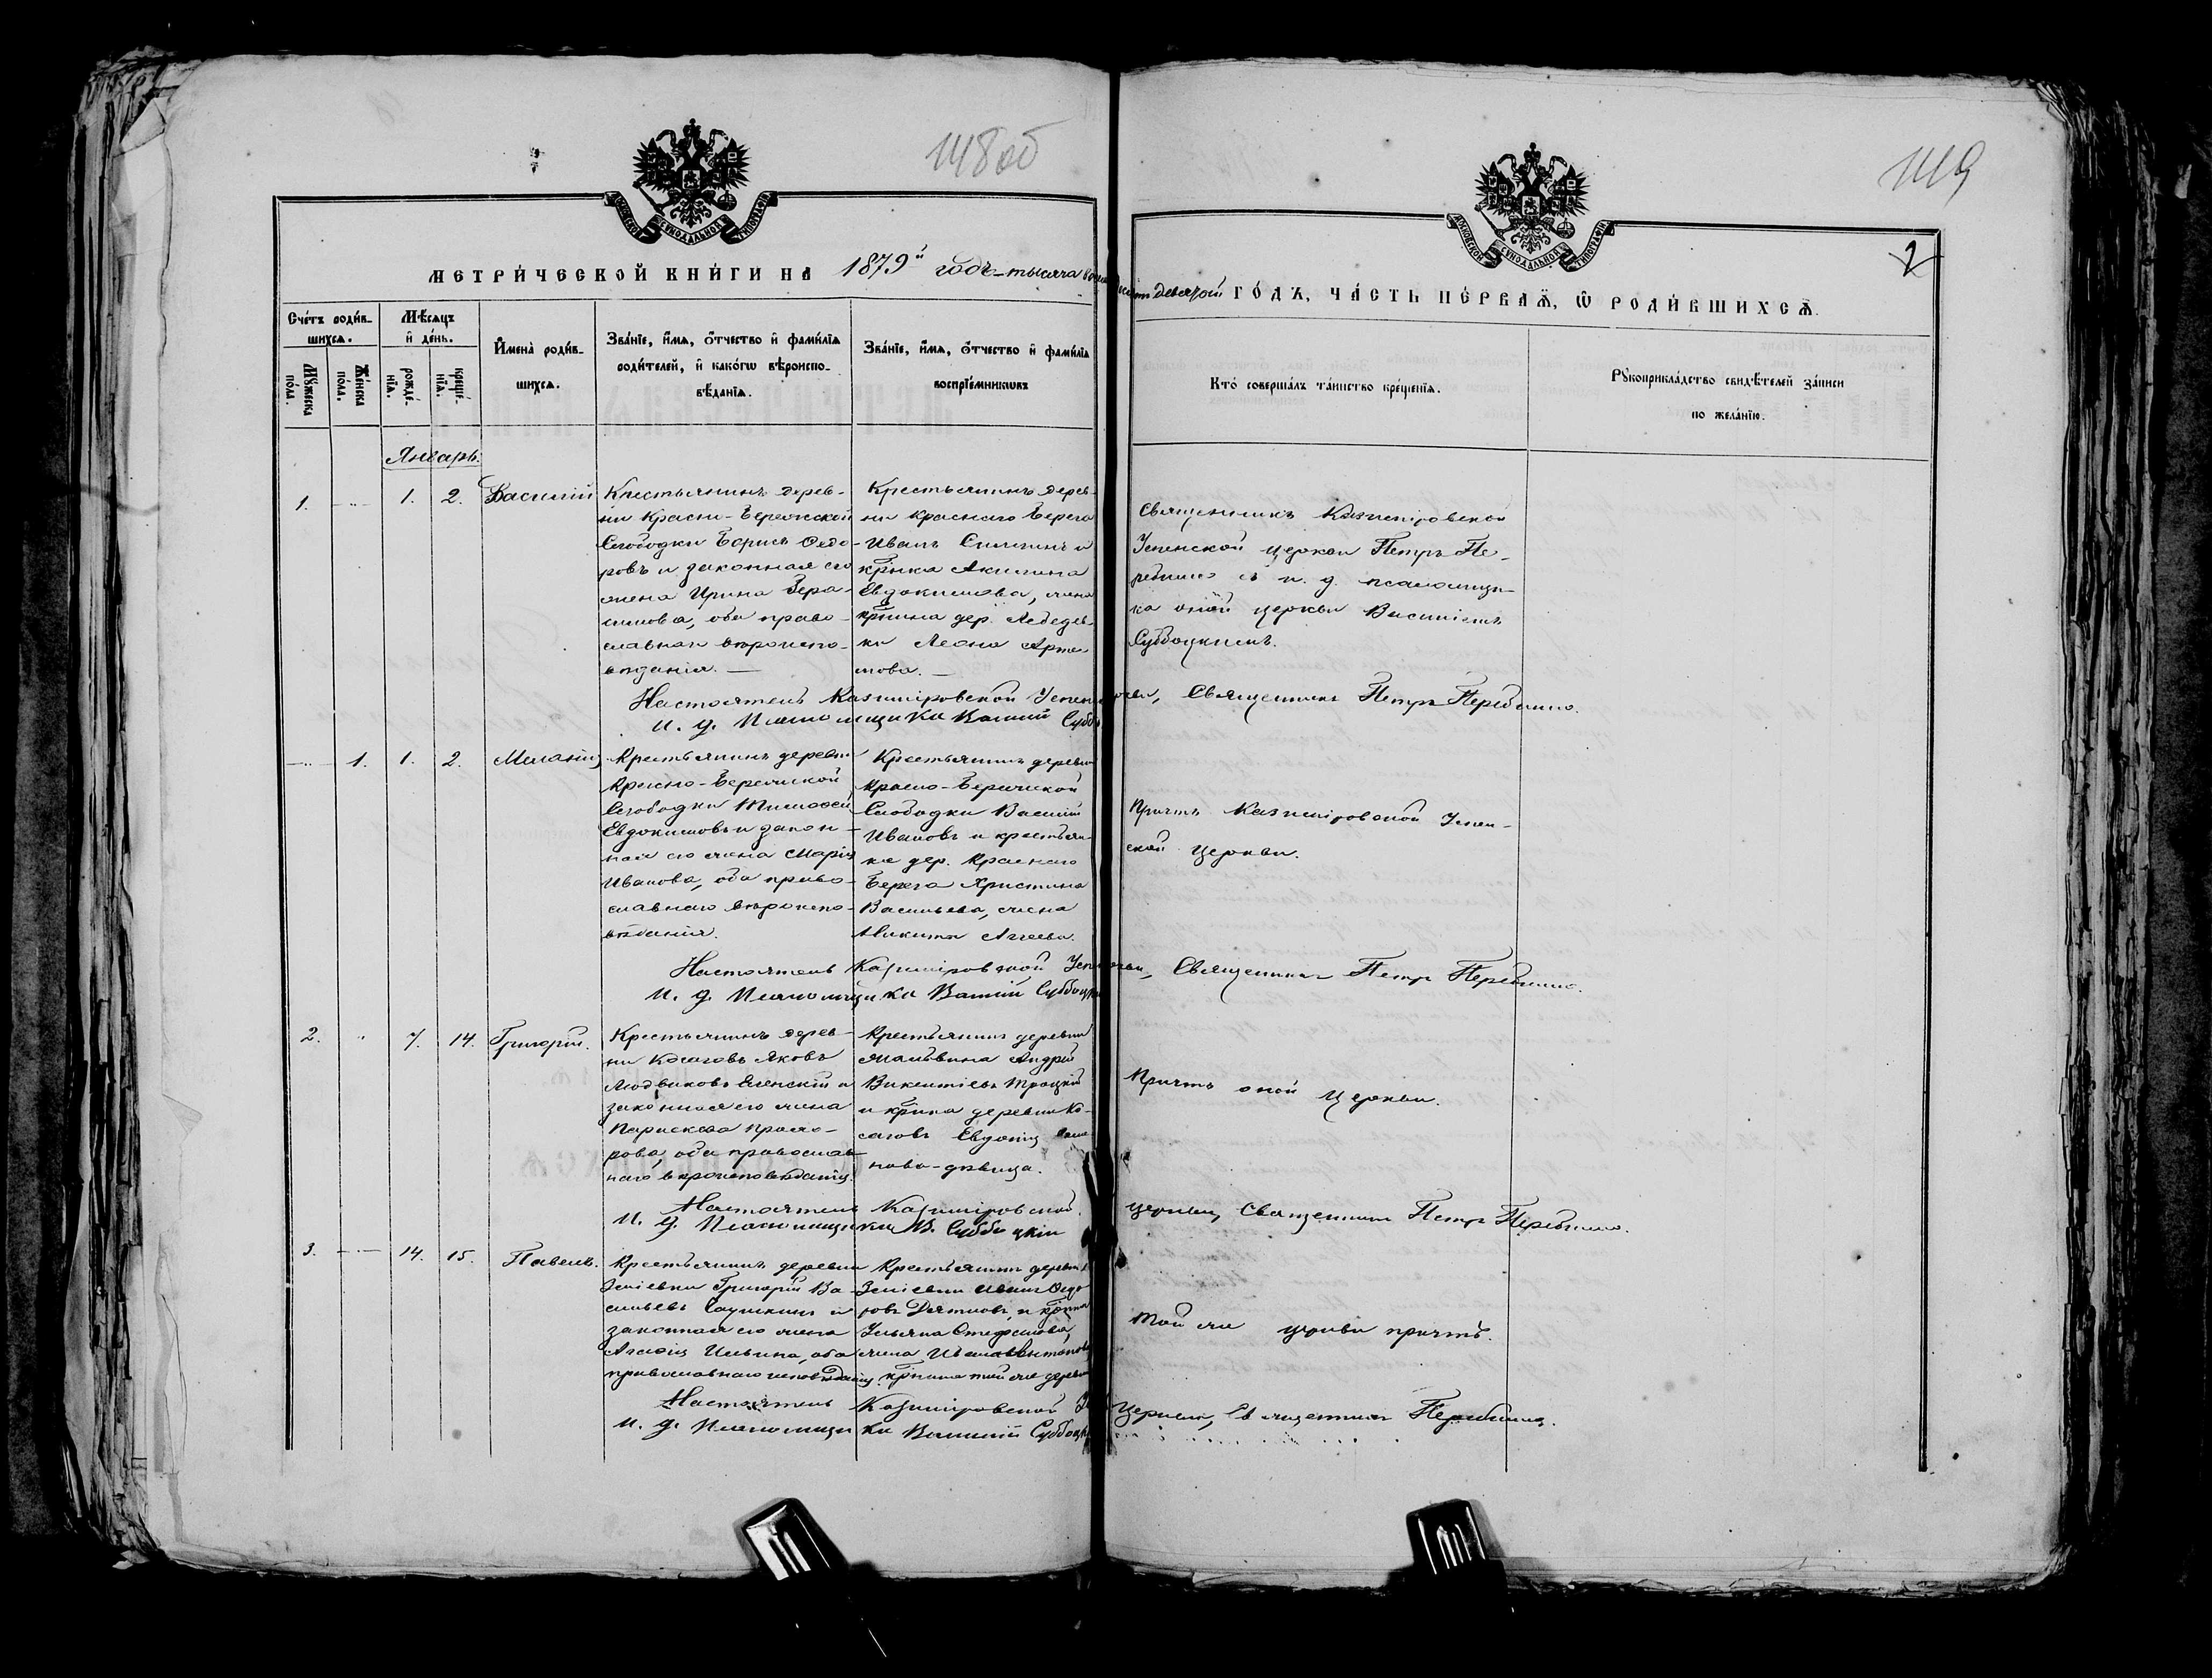 148об
149
2
МОСКОВСКОЙ СУНОДАЛЬНОЙ ТИПОГРАФІИ
МОСКОВСКОЙ СУНОДАЛЬНОЙ ТИПОГРАФІИ
МЕТРИ́ЧЕСКОЙ КНИ́ГИ НА 1879й годъ тысяча девятой ГО́ДЪ, ЧА́СТЬ ПЕ́РВАЯ, Ѿ РОДИ́ВШИХСЯ.
Сче́тъ роди́в-
шихся.
Мꙋ́жеска по́ла.
Же́нска по́ла.
Мѣ́сяцъ
и҆ де́нь.
рожде́-
нїѧ.
креще́-
нїѧ.
И҆мена̀ роди́в-
шихся.
Зва́нїе, и҆́мѧ, ѻ҆́тчество и҆ фами́лїѧ
роди́телей, и҆ како́гѡ вѣроиспо-
вѣ́данїѧ.
Зва́нїе, и҆́мѧ, ѻ҆́тчество и҆ фами́лїѧ
воспрїе́мникѡвъ
Кто̀ соверша́лъ та́инство креще́нїѧ.
Рꙋкоприкла́дство свидѣ́телей за́писи
по жела́нїю.
Январь.
1.
1.
2.
Василій
Крестьянинъ дерев-
ни Красно-Бережской
Слободки Борисъ Ѳедо-
ровъ и законная его
жена Ирина Гера-
симова, оба право-
славнаго вѣроиспо-
вѣданія.
Крестьянинъ дерев-
ни Краснаго Берега
Иванъ и
кр҃нка Акилина
Евдокимова, жена
кр҃нина дер. Лебедев-
ки Леона Арте-
мова.
Священникъ Казимировской
Успенской церкви Петръ Пе-
ребилло съ и. д. псаломщи-
ка оной церкви Василіемъ
Субботцкимъ.
Настоятель Казимировской Успен церкви, Священникъ Петръ Перебилло.
И. д. Псаломщика Василій Субб
1.
1.
2.
Меланія
Крестьянинъ деревни
Красно-Бережской
Слободки Тимоѳей
Евдокимовъ и закон-
ная его жена Марія
Иванова, оба право-
славнаго вѣроиспо-
вѣданія.
Крестьянинъ деревни
Красно-Бережской
Слободки Василій
Ивановъ и крестьян-
ка дер. Краснаго
Берега Христина
Васильева, жена
Никиты Агеева.
Причтъ Казимировской Успен-
ской церкви.
Настоятель Казимировской Успен церкви, Священникъ Петръ Перебилло.
И. д. Псаломщика Василій Субботцкій
2.
7.
14.
Григорій.
Крестьянинъ дерев-
ни Косаговъ Яковъ
Людвиковъ и
законная его жена
Параскева Прохо-
рова, оба православ-
наго вѣроисповѣданія.
Крестьянинъ деревни
Мальвина Андрей
Викентіевъ Троцкій
и кр҃нка деревни Ко-
саговъ Евдокія
нова-дѣвица.
Причтъ оной церкви.
Настоятель Казимировской церкви, Священникъ Петръ Перебилло.
И. д. Псаломщика В. Субботцкій
3.
14.
15.
Павелъ.
Крестьянинъ деревни
Зміевки Григорій Ва-
сильевъ и
законная его жена
Агафія Ильина, оба
православнаго исповѣданія.
Крестьянинъ деревни
Зміевки Иванъ Ѳедо-
ровъ и кр҃нка
Ульяна Стефанова,
жена Ивана Антонова,
кр҃нина той же деревни
Той же церкви причтъ.
Настоятель Казимировской церкви, Священникъ Перебилло.
И. д. Псаломщика Василій Субботц